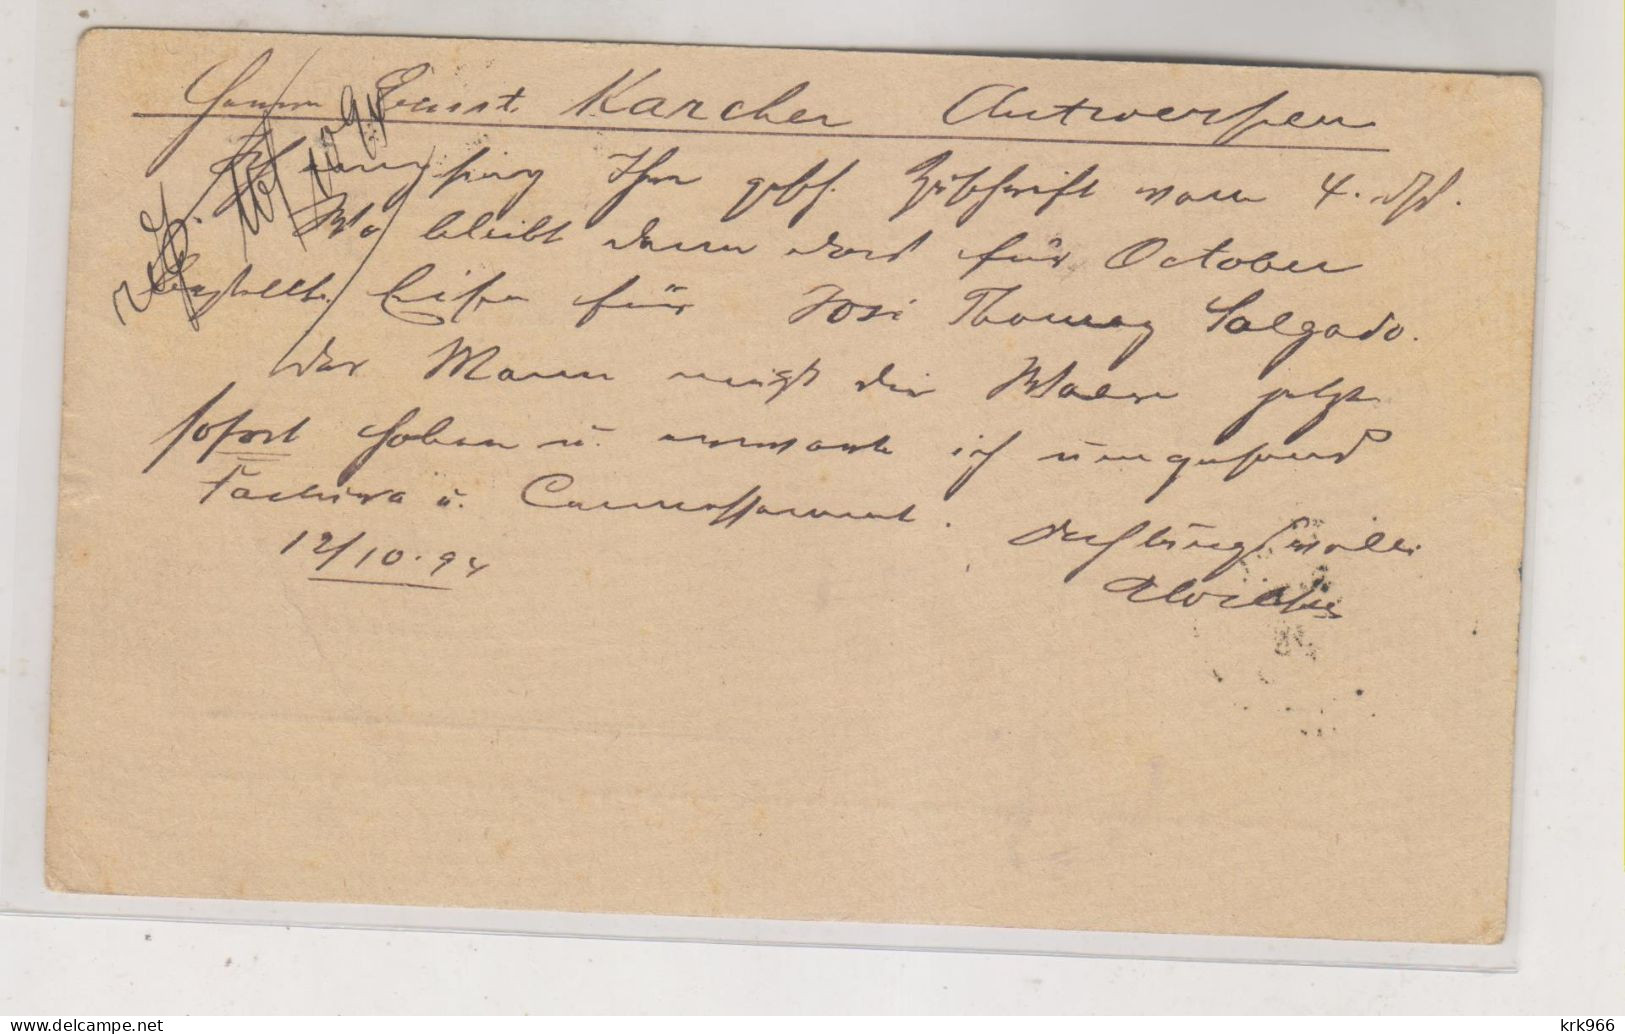 Herrn Ernst Karcher Antwerpen
Ich empfing Ihre gefl. Zuschrift vom 4. ds.
Wo bleibt denn das für October
bestellte Eisen für José Thomaz Salgado.
Der Mann muß die Waare jetzt
sofort haben u. erwarte ich umgehend
Factura u. Connossement.
Achtungsvoll
12/10.94
krk966